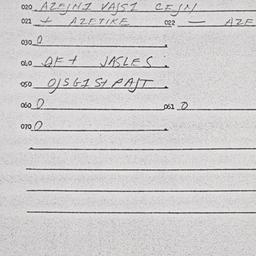 020 AZEJNI VAJSI CEJN
021 + AZETIKE 022 — AZE
030 0
040 QE+ JASLES
050 OJSGISTPAJT
060 0 061 0
070 0